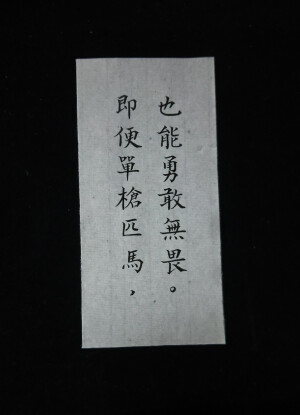 即便單槍匹馬，
也能勇敢無畏。